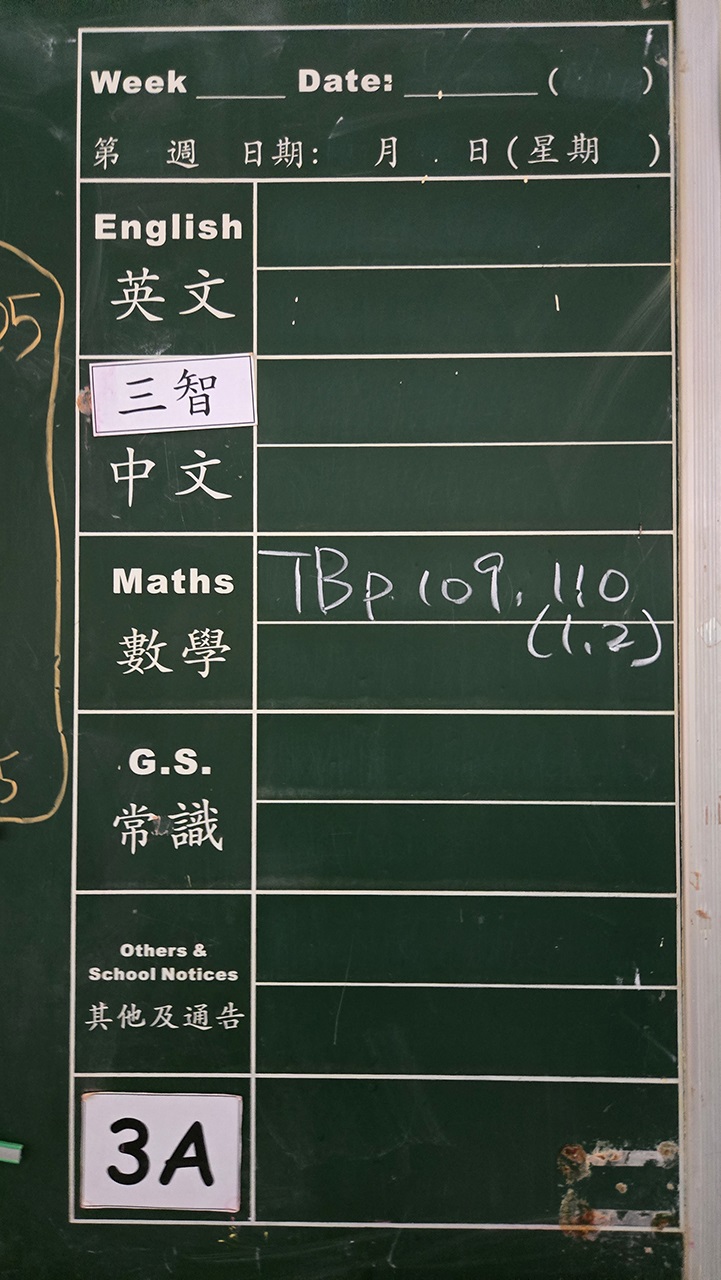 Week _____ Date: ________ ( )
第 週 日期: 月 日(星期 )
English
英文
三智
中文
Maths
TBp 109, 110
(1,2)
數學
G.S.
常識
Others &
School Notices
其他及通告
3A
05
5